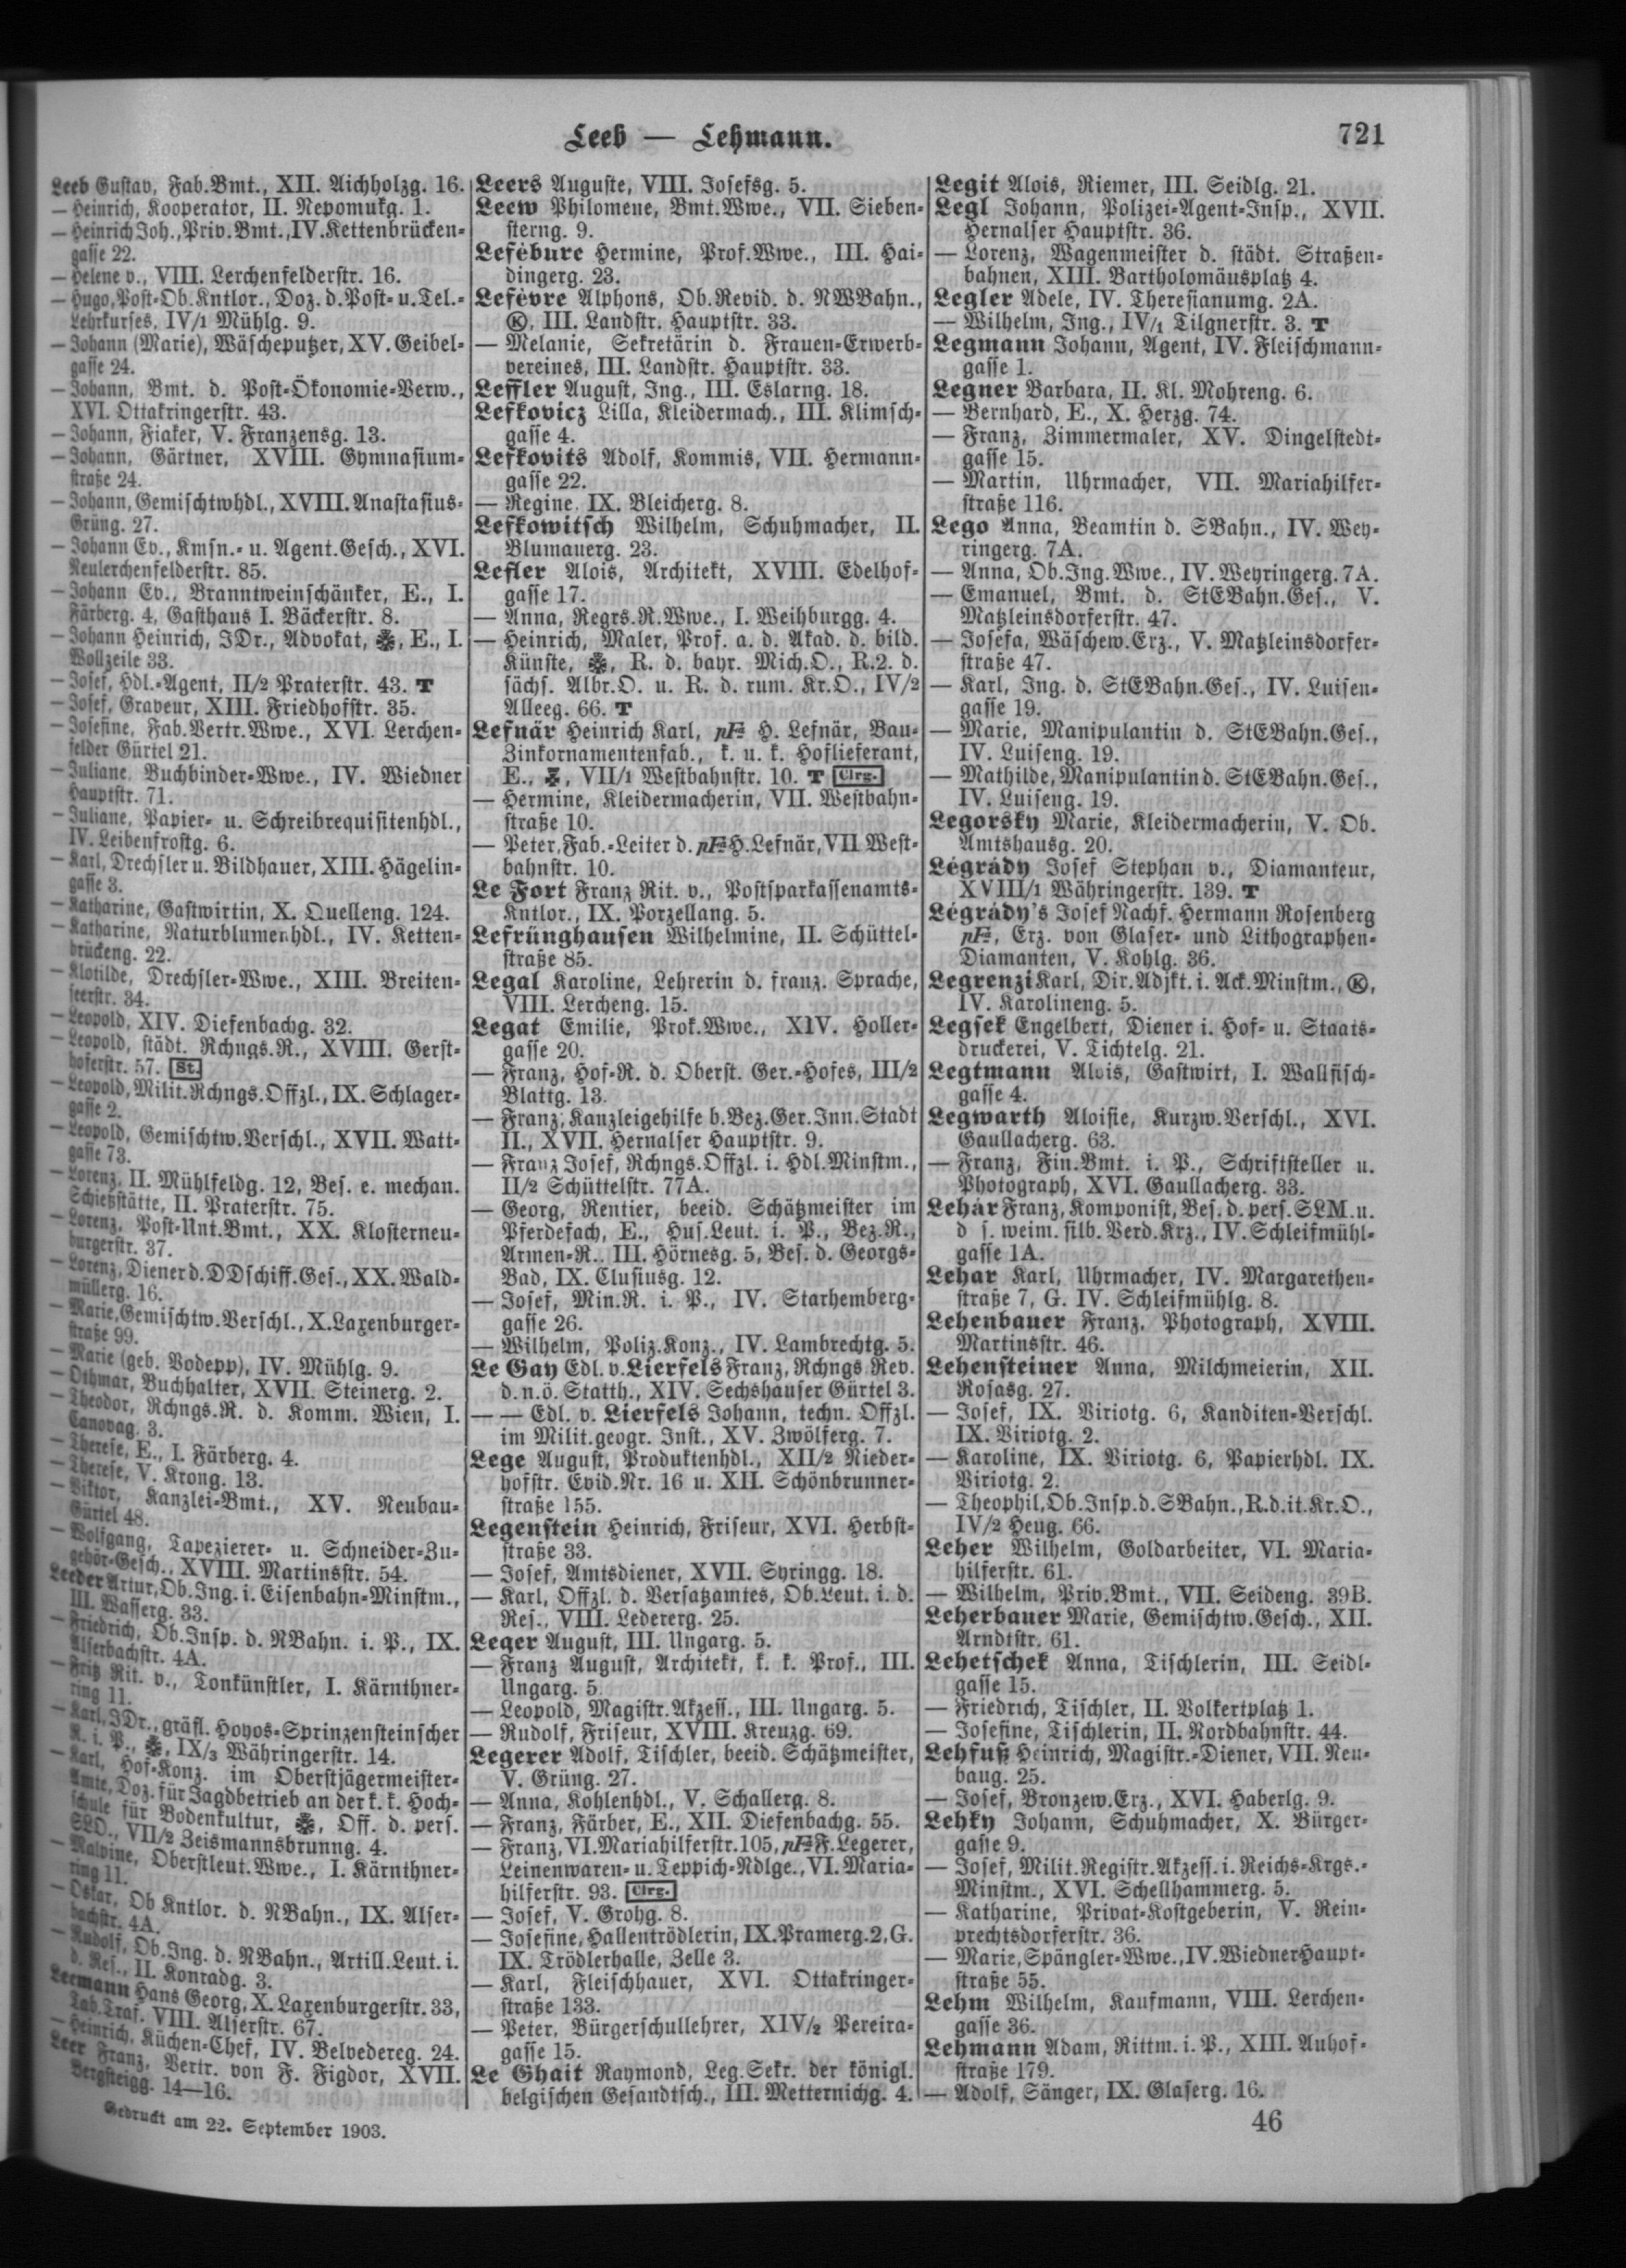 Leeb — Lehmann.
721
Leeb Gustav, Fab.Bmt., XII. Aichholzg. 16.
— Heinrich, Kooperator, II. Nepomukg. 1.
— Heinrich Joh., Priv.Bmt., IV. Kettenbrücken-
gasse 22.
— Helene v., VIII. Lerchenfelderstr. 16.
— Hugo, Post-Ob.Kntlor., Doz. d. Post- u. Tel.-
Lehrkurses, IV/1 Mühlg. 9.
— Johann (Marie), Wäscheputzer, XV. Geibel-
gasse 24.
— Johann, Bmt. d. Post-Ökonomie-Verw.,
XVI. Ottakringerstr. 43.
— Johann, Fiaker, V. Franzensg. 13.
— Johann, Gärtner, XVIII. Gymnasium-
straße 24.
— Johann, Gemischtwhdl., XVIII. Anastasius-
Grüng. 27.
— Johann Ev., Kmsn.- u. Agent.Gesch., XVI.
Neulerchenfelderstr. 85.
— Johann Ev., Branntweinschänker, E., I.
Färberg. 4, Gasthaus I. Bäckerstr. 8.
— Johann Heinrich, JDr., Advokat, E., I.
Wollzeile 33.
— Josef, Hdl.-Agent, II/2 Praterstr. 43. T
— Josef, Graveur, XIII. Friedhofstr. 35.
— Josefine, Fab.Vertr.Wwe., XVI. Lerchen-
felder Gürtel 21.
— Juliane, Buchbinder-Wwe., IV. Wiedner
Hauptstr. 71.
— Juliane, Papier- u. Schreibrequisitenhdl.,
IV. Leibenfrostg. 6.
— Karl, Drechsler u. Bildhauer, XIII. Hägelin-
gasse 3.
— Katharine, Gastwirtin, X. Quelleng. 124.
— Katharine, Naturblumenhdl., IV. Ketten-
brückeng. 22.
— Klotilde, Drechsler-Wwe., XIII. Breiten-
seerstr. 34.
— Leopold, XIV. Diefenbachg. 32.
— Leopold, städt. Rchngs.R., XVIII. Gerst-
hoferstr. 57. St.
— Leopold, Milit.Rchngs.Offzl., IX. Schlager-
gasse 2.
— Leopold, Gemischtw.Verschl., XVII. Watt-
gasse 73.
— Lorenz, II. Mühlfeldg. 12, Bes. e. mechan.
Schießstätte, II. Praterstr. 75.
— Lorenz, Post-Unt.Bmt., XX. Klosterneu-
burgerstr. 37.
— Lorenz, Diener d. DDschiff.Ges., XX. Wald-
müllerg. 16.
— Marie, Gemischtw.Verschl., X. Laxenburger-
straße 99.
— Marie (geb. Bodepp), IV. Mühlg. 9.
— Othmar, Buchhalter, XVII. Steinerg. 2.
— Theodor, Rchngs.R. d. Komm. Wien, I.
Canovag. 3.
— Therese, E., I. Färberg. 4.
— Therese, V. Krong. 13.
— Viktor, Kanzlei-Bmt., XV. Neubau-
Gürtel 48.
— Wolfgang, Tapezierer- u. Schneider-Zu-
gehör-Gesch., XVIII. Martinsstr. 54.
Leeder Artur, Ob.Ing. i. Eisenbahn-Minstm.,
III. Wasserg. 33.
— Friedrich, Ob.Insp. d. NBahn. i. P., IX.
Alserbachstr. 4A.
— Fritz Rit. v., Tonkünstler, I. Kärnthner-
ring 11.
— Karl, JDr., gräfl. Hoyos-Sprinzensteinscher
R. i. P., IX/3 Währingerstr. 14.
— Karl, Hof-Konz. im Oberstjägermeister-
Amte, Doz. für Jagdbetrieb an der k. k. Hoch-
schule für Bodenkultur, Off. d. pers.
SLO., VII/2 Zeismannsbrunng. 4.
— Malvine, Oberstleut.Wwe., I. Kärnthner-
ring 11.
— Oskar, Ob Kntlor. d. NBahn., IX. Alser-
bachstr. 4A.
— Rudolf, Ob.Ing. d. NBahn., Artill.Leut. i.
d. Res., II. Konradg. 3.
Leermann Hans Georg, X. Laxenburgerstr. 33,
Tab.Traf. VIII. Alserstr. 67.
— Heinrich, Küchen-Chef, IV. Belvedereg. 24.
Leer Franz, Vertr. von F. Figdor, XVII.
Bergsteigg. 14—16.
Gedruckt am 22. September 1903.
Leers Auguste, VIII. Josefsg. 5.
Leew Philomene, Bmt.Wwe., VII. Sieben-
sterng. 9.
Lefébure Hermine, Prof.Wwe., III. Hai-
dingerg. 23.
Lefèvre Alphons, Ob.Revid. d. NWBahn.,
Ⓚ, III. Landstr. Hauptstr. 33.
— Melanie, Sekretärin d. Frauen-Erwerb-
vereines, III. Landstr. Hauptstr. 33.
Leffler August, Ing., III. Eslarng. 18.
Lefkovicz Lilla, Kleidermach., III. Klimsch-
gasse 4.
Lefkovits Adolf, Kommis, VII. Hermann-
gasse 22.
— Regine, IX. Bleicherg. 8.
Lefkowitsch Wilhelm, Schuhmacher, II.
Blumauerg. 23.
Lefler Alois, Architekt, XVIII. Edelhof-
gasse 17.
— Anna, Regrs.R.Wwe., I. Weihburgg. 4.
— Heinrich, Maler, Prof. a. d. Akad. d. bild.
Künste, R. d. bayr. Mich.O., R.2. d.
sächs. Albr.O. u. R. d. rum. Kr.O., IV/2
Alleeg. 66. T
Lefnär Heinrich Karl, pFa H. Lefnär, Bau-
Zinkornamentenfab., k. u. k. Hoflieferant,
E., VII/1 Westbahnstr. 10. T Clrg.
— Hermine, Kleidermacherin, VII. Westbahn-
straße 10.
— Peter, Fab.-Leiter d. pFa H. Lefnär, VII West-
bahnstr. 10.
Le Fort Franz Rit. v., Postsparkassenamts-
Kntlor., IX. Porzellang. 5.
Lefrünghausen Wilhelmine, II. Schüttel-
straße 85.
Legal Karoline, Lehrerin d. franz. Sprache,
VIII. Lercheng. 15.
Legat Emilie, Prok.Wwe., XIV. Holler-
gasse 20.
— Franz, Hof-R. d. Oberst. Ger.-Hofes, III/2
Blattg. 13.
— Franz, Kanzleigehilfe b. Bez.Ger. Inn. Stadt
II., XVII. Hernalser Hauptstr. 9.
— Franz Josef, Rchngs.Offzl. i. Hdl.Minstm.,
II/2 Schüttelstr. 77A.
— Georg, Rentier, beeid. Schätzmeister im
Pferdefach, E., Hus.Leut. i. P., Bez.R.,
Armen-R.. III. Hörnesg. 5, Bes. d. Georgs-
Bad, IX. Clusiusg. 12.
— Josef, Min.R. i. P., IV. Starhemberg-
gasse 26.
— Wilhelm, Poliz.Konz., IV. Lambrechtg. 5.
Le Gay Edl. v. Lierfels Franz, Rchngs Rev.
d. n.ö. Statth., XIV. Sechshauser Gürtel 3.
— — Edl. v. Lierfels Johann, techn. Offzl.
im Milit.geogr. Inst., XV. Zwölferg. 7.
Lege August, Produktenhdl., XII/2 Nieder-
hofstr. Evid.Nr. 16 u. XII. Schönbrunner-
straße 155.
Legenstein Heinrich, Friseur, XVI. Herbst-
straße 33.
— Josef, Amtsdiener, XVII. Syringg. 18.
— Karl, Offzl. d. Versatzamtes, Ob.Leut. i. d.
Res., VIII. Ledererg. 25.
Leger August, III. Ungarg. 5.
— Franz August, Architekt, k. k. Prof., III.
Ungarg. 5.
— Leopold, Magistr.Akzess., III. Ungarg. 5.
— Rudolf, Friseur, XVIII. Kreuzg. 69.
Legerer Adolf, Tischler, beeid. Schätzmeister,
V. Grüng. 27.
— Anna, Kohlenhdl., V. Schallerg. 8.
— Franz, Färber, E., XII. Diefenbachg. 55.
— Franz, VI. Mariahilferstr. 105, pFa F. Legerer,
Leinenwaren- u. Teppich-Ndlge., VI. Maria-
hilferstr. 93. Clrg.
— Josef, V. Grohg. 8.
— Josefine, Hallentrödlerin, IX. Pramerg. 2, G.
IX. Trödlerhalle, Zelle 3.
— Karl, Fleischhauer, XVI. Ottakringer-
straße 133.
— Peter, Bürgerschullehrer, XIV/2 Pereira-
gasse 15.
Le Ghait Raymond, Leg.Sekr. der königl.
belgischen Gesandtsch., III. Metternichg. 4.
Legit Alois, Riemer, III. Seidlg. 21.
Legl Johann, Polizei-Agent-Insp., XVII.
Hernalser Hauptstr. 36.
— Lorenz, Wagenmeister d. städt. Straßen-
bahnen, XIII. Bartholomäusplatz 4.
Legler Adele, IV. Theresianumg. 2A.
— Wilhelm, Ing., IV/1 Tilgnerstr. 3. T
Legmann Johann, Agent, IV. Fleischmann-
gasse 1.
Legner Barbara, II. Kl. Mohreng. 6.
— Bernhard, E., X. Herzg. 74.
— Franz, Zimmermaler, XV. Dingelstedt-
gasse 15.
— Martin, Uhrmacher, VII. Mariahilfer-
straße 116.
Lego Anna, Beamtin d. SBahn., IV. Wey-
ringerg. 7A.
— Anna, Ob.Ing.Wwe., IV. Weyringerg. 7A.
— Emanuel, Bmt. d. StEBahn.Ges., V.
Matzleinsdorferstr. 47.
— Josefa, Wäschew.Erz., V. Matzleinsdorfer-
straße 47.
— Karl, Ing. d. StEBahn.Ges., IV. Luisen-
gasse 19.
— Marie, Manipulantin d. StEBahn.Ges.,
IV. Luiseng. 19.
— Mathilde, Manipulantin d. StEBahn.Ges.,
IV. Luiseng. 19.
Legorsky Marie, Kleidermacherin, V. Ob.
Amtshausg. 20.
Légrády Josef Stephan v., Diamanteur,
XVIII/1 Währingerstr. 139. T
Légrády's Josef Nachf. Hermann Rosenberg
pFa, Erz. von Glaser- und Lithographen-
Diamanten, V. Kohlg. 36.
Legrenzi Karl, Dir.Adjkt. i. Ack.Minstm., Ⓚ,
IV. Karolineng. 5.
Legsek Engelbert, Diener i. Hof- u. Staats-
druckerei, V. Tichtelg. 21.
Legtmann Alois, Gastwirt, I. Wallfisch-
gasse 4.
Legwarth Aloisie, Kurzw.Verschl., XVI.
Gaullacherg. 63.
— Franz, Fin.Bmt. i. P., Schriftsteller u.
Photograph, XVI. Gaullacherg. 33.
Lehár Franz, Komponist, Bes. d. pers. SLM. u.
d s. weim. silb. Verd.Krz., IV. Schleifmühl-
gasse 1A.
Lehar Karl, Uhrmacher, IV. Margarethen-
straße 7, G. IV. Schleifmühlg. 8.
Lehenbauer Franz, Photograph, XVIII.
Martinsstr. 46.
Lehensteiner Anna, Milchmeierin, XII.
Rosasg. 27.
— Josef, IX. Viriotg. 6, Kanditen-Verschl.
IX. Viriotg. 2.
— Karoline, IX. Viriotg. 6, Papierhdl. IX.
Viriotg. 2.
— Theophil, Ob.Insp. d. SBahn., R. d. it. Kr.O.,
IV/2 Heug. 66.
Leher Wilhelm, Goldarbeiter, VI. Maria-
hilferstr. 61.
— Wilhelm, Priv.Bmt., VII. Seideng. 39B.
Leherbauer Marie, Gemischtw.Gesch., XII.
Arndtstr. 61.
Lehetschek Anna, Tischlerin, III. Seidl-
gasse 15.
— Friedrich, Tischler, II. Volkertplatz 1.
— Josefine, Tischlerin, II. Nordbahnstr. 44.
Lehfuß Heinrich, Magistr.-Diener, VII. Neu-
baug. 25.
— Josef, Bronzew.Erz., XVI. Haberlg. 9.
Lehky Johann, Schuhmacher, X. Bürger-
gasse 9.
— Josef, Milit.Registr.Akzess. i. Reichs-Krgs.-
Minstm., XVI. Schellhammerg. 5.
— Katharine, Privat-Kostgeberin, V. Rein-
prechtsdorferstr. 36.
— Marie, Spängler-Wwe., IV. Wiedner Haupt-
straße 55.
Lehm Wilhelm, Kaufmann, VIII. Lerchen-
gasse 36.
Lehmann Adam, Rittm. i. P., XIII. Auhof-
straße 179.
— Adolf, Sänger, IX. Glaserg. 16.
46